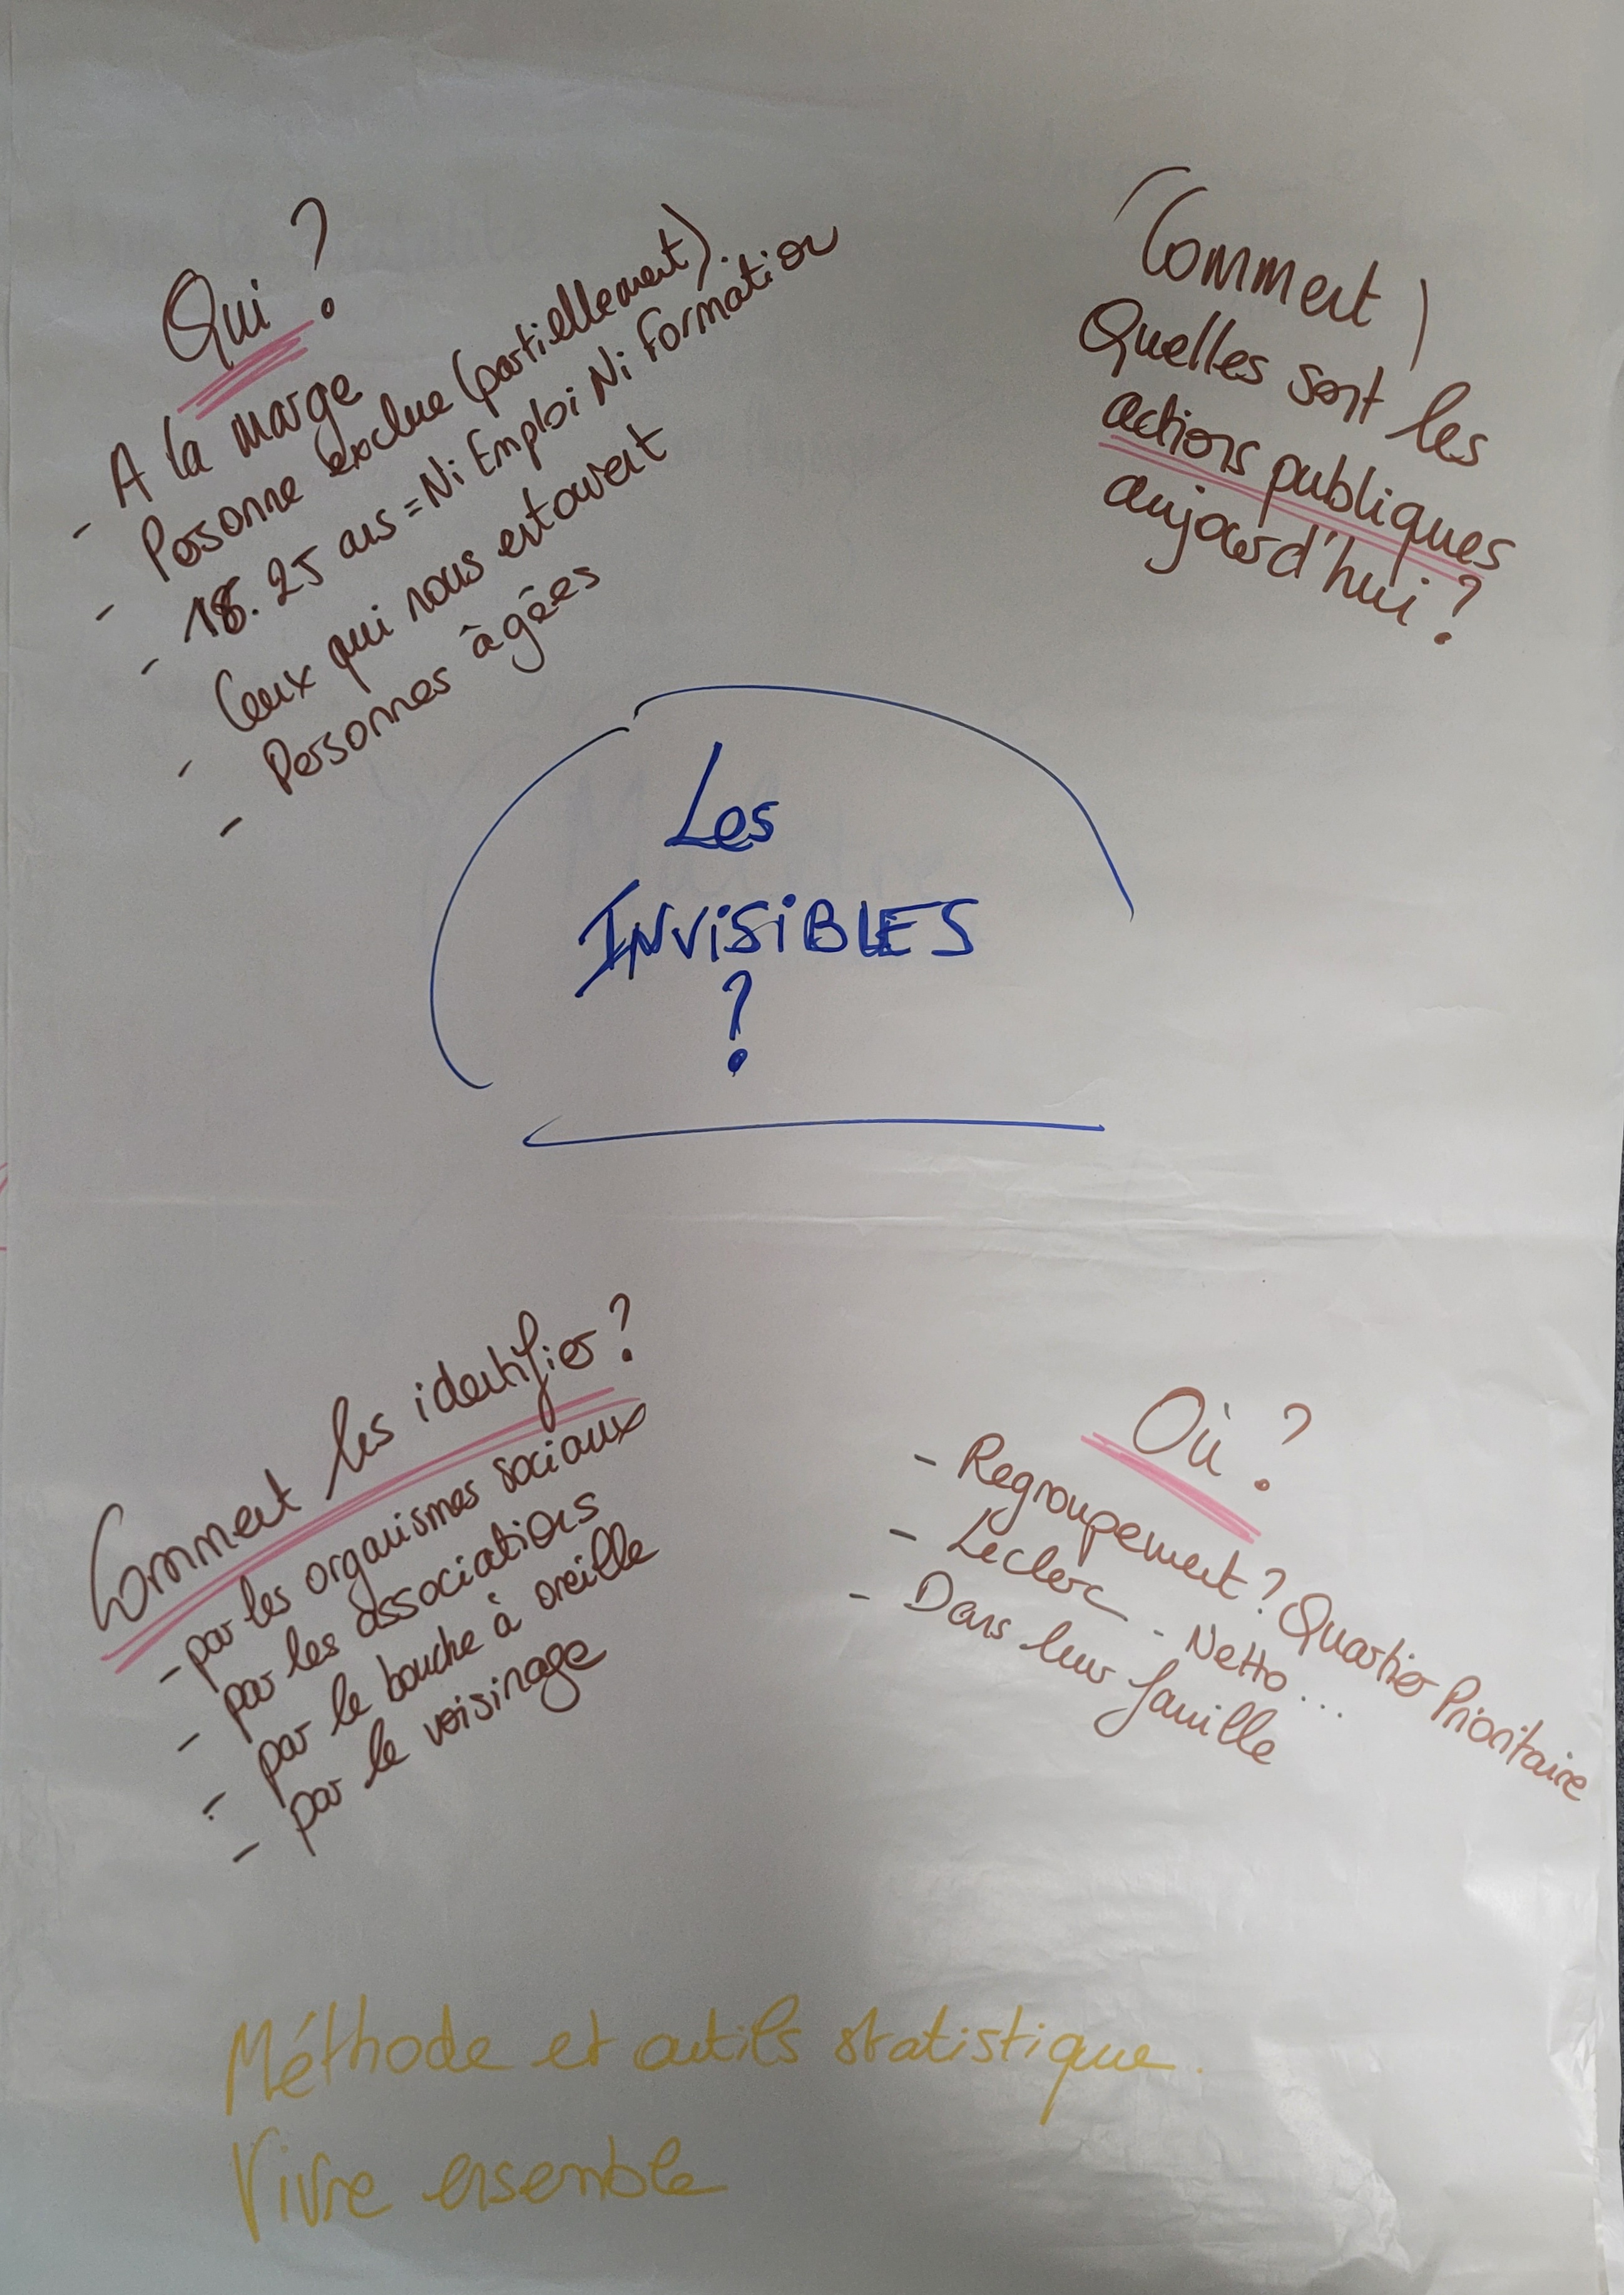 Qui ?
- A la marge
- Personne exclue (partiellement).
- 18.25 ans = Ni Emploi Ni Formation
- Ceux qui nous entourent
- Personnes âgées
(Comment)
Quelles sont les
actions publiques
aujourd'hui ?
Les
INVISIBLES
?
Comment les identifier ?
- par les organismes sociaux
- par les associations
- par le bouche à oreille
- par le voisinage
Où ?
- Regroupement ? Quartier Prioritaire
- Leclerc - Netto ...
- Dans leur famille
Méthode et outils statistique.
Vivre ensemble